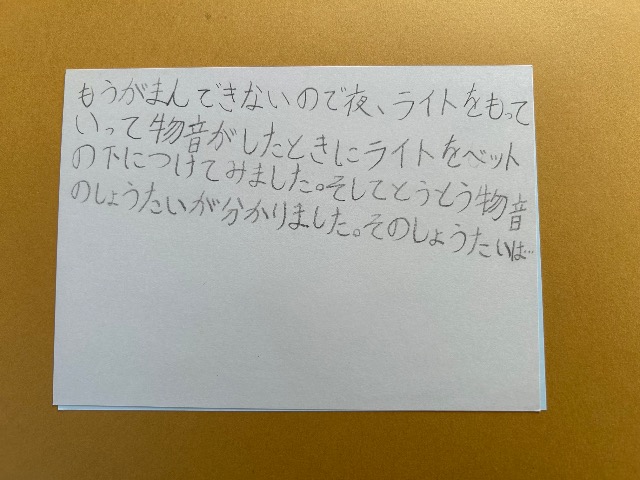 もうがまんできないので夜、ライトをもって
いって物音がしたときにライトをベット
の下につけてみました。そしてとうとう物音
のしょうたいが分かりました。そのしょうたいは…